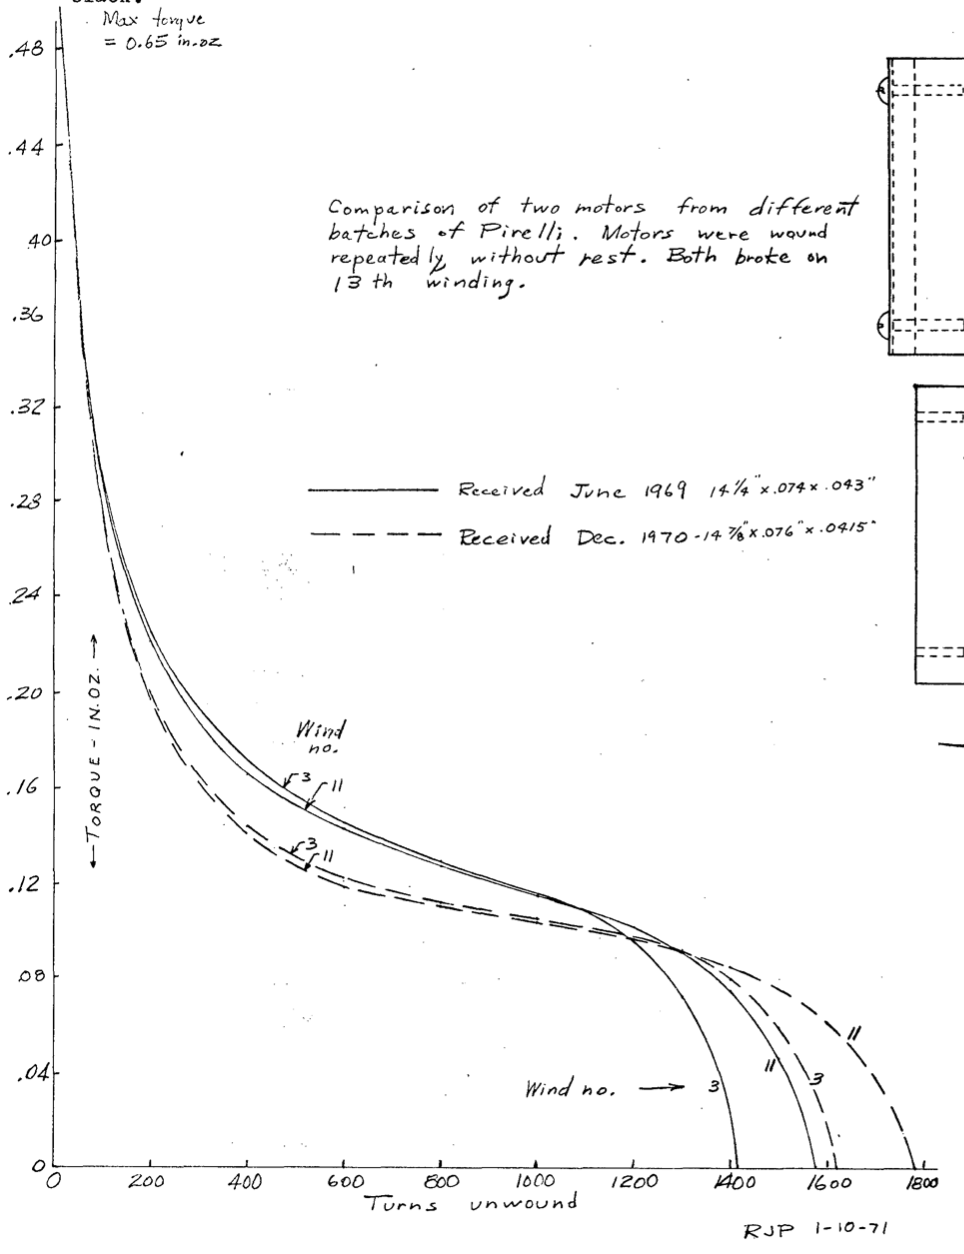 Max torque
= 0.65 in.oz
.48
.44
.40
.36
.32
.28
.24
.20
.16
.12
.08
.04
0
← TORQUE - IN.OZ. →
Comparison of two motors from different
batches of Pirelli. Motors were wound
repeatedly without rest. Both broke on
13th winding.
Received June 1969 14 1/4" x .074 x .043"
Received Dec. 1970 - 14 7/8 x .076" x .0415"
Wind
no.
3
11
3
11
Wind no. → 3
11
3
11
0 200 400 600 800 1000 1200 1400 1600 1800
Turns unwound
RJP 1-10-71